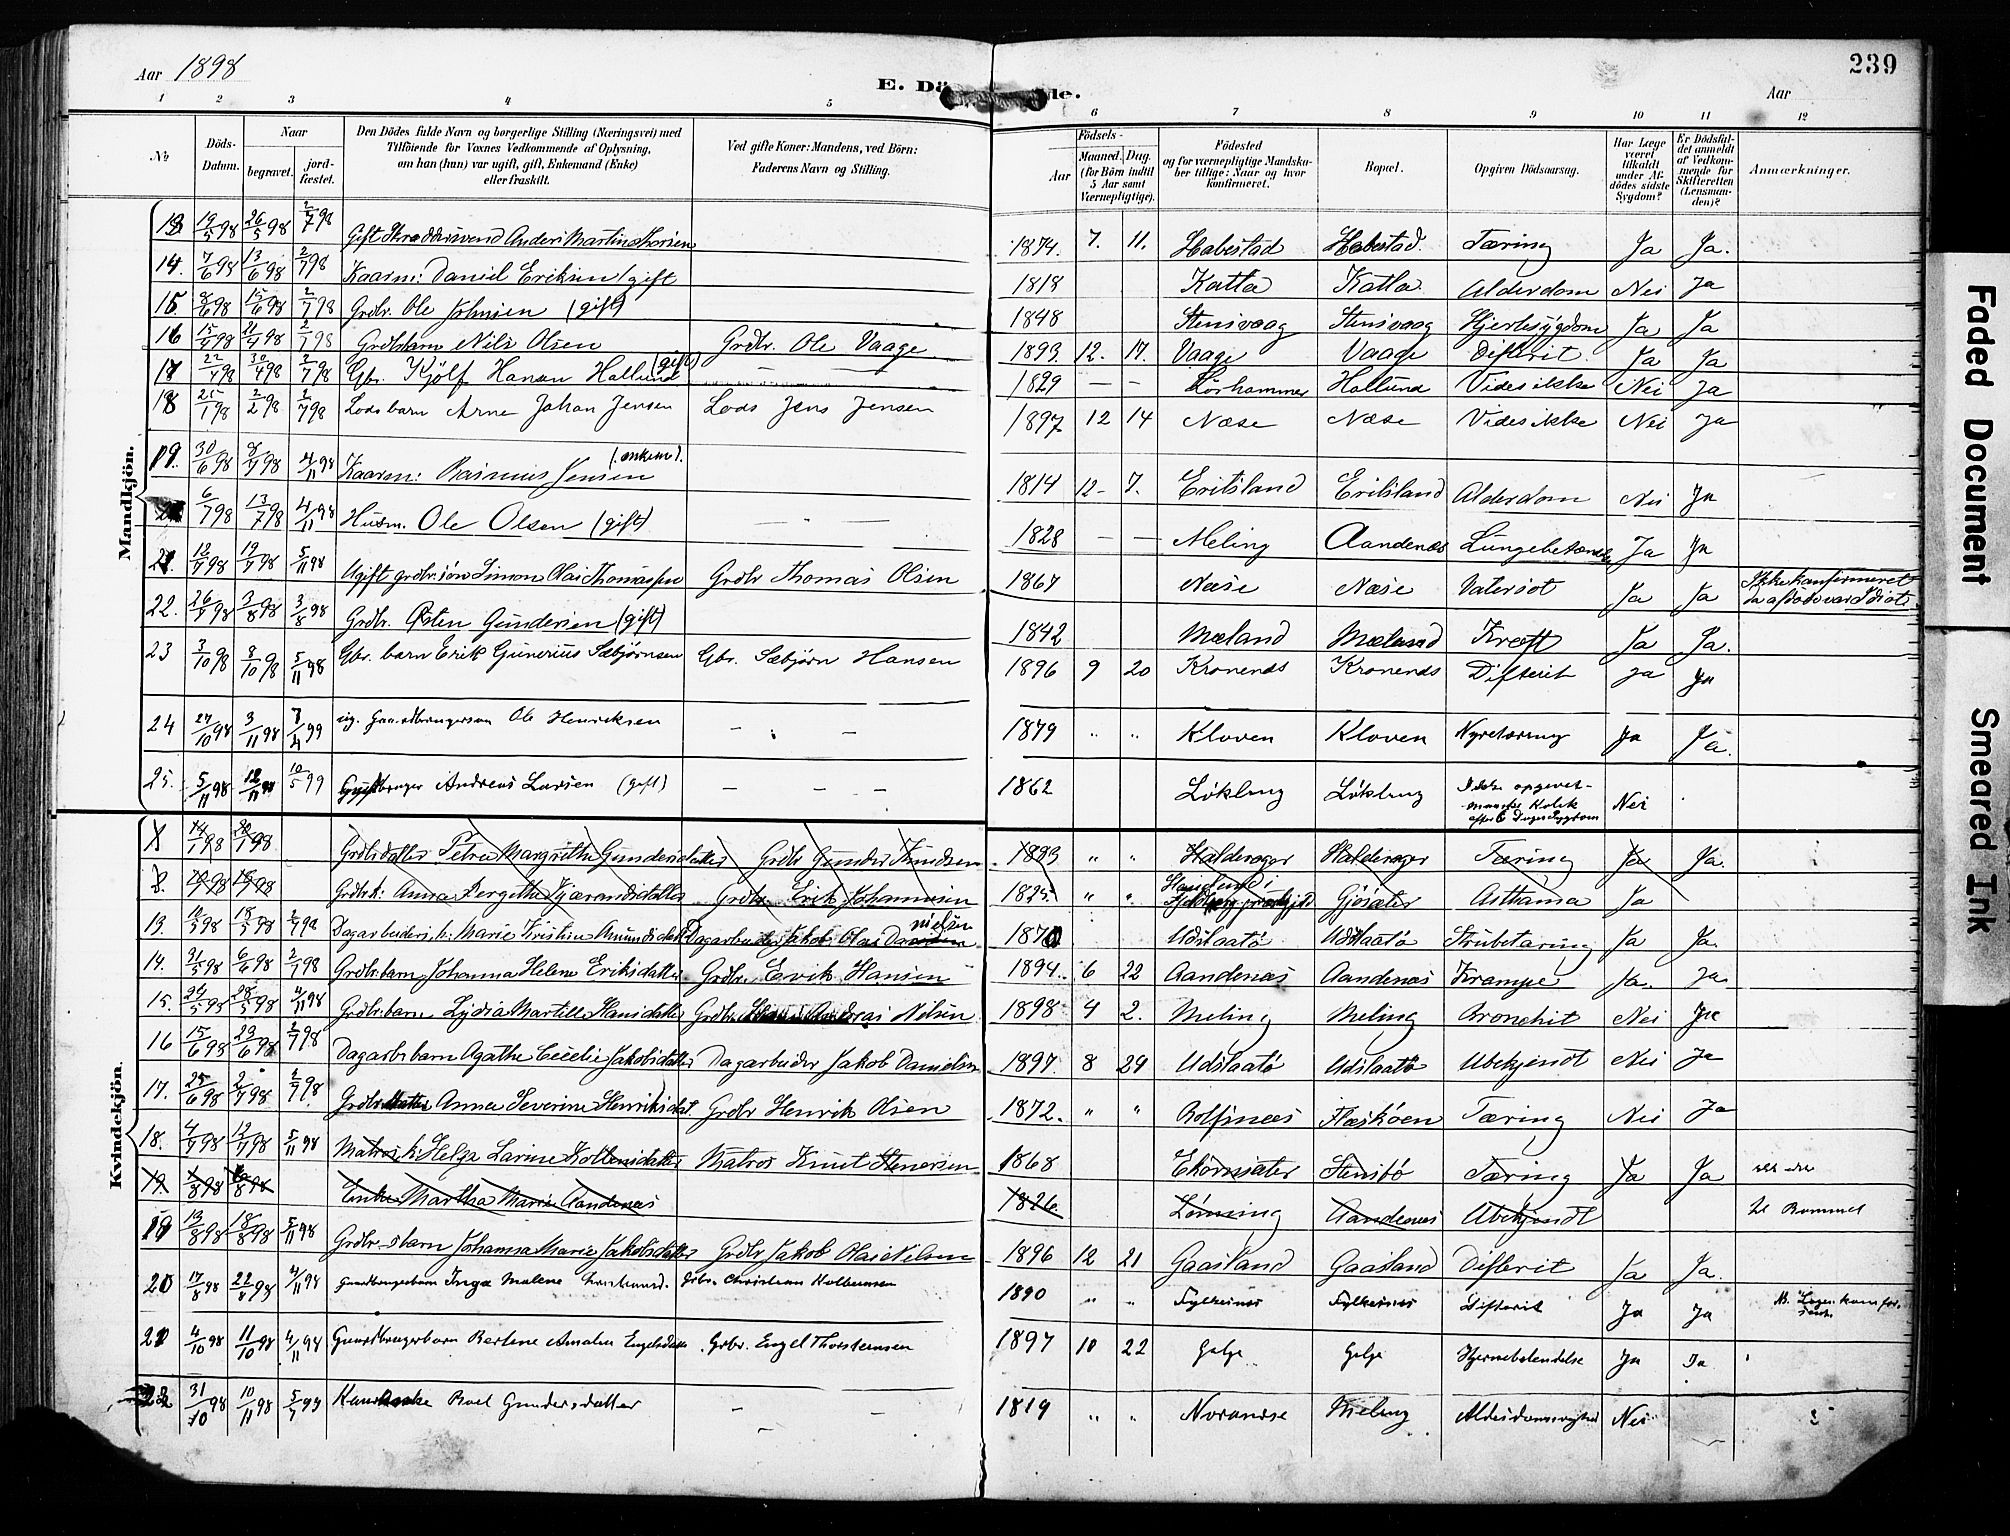 Aar 1898
E. Dö de.
239
Aar
1 2 3 4 5 6 7 8 9 10 11 12
No
Döds-Datum.
Naar
begravet.
jord-fæstet.
Den Dödes fulde Navn og borgerlige Stilling (Næringsvei) med
Tilföiende for Voxnes Vedkommende af Oplysning,
om han (hun) var ugift, gift, Enkemand (Enke)
eller fraskilt.
Ved gifte Koner: Mandens, ved Börn:
Faderens Navn og Stilling.
Födsels-
Aar
Maaned. Dag.
(for Börn indtil
5 Aar samt
Værnepligtige).
Födested
og for værnepligtige Mandska-
ber tillige: Naar og hvor
konfirmeret.
Bopæl.
Opgiven Dödsaarsag.
Har Læge
været
tilkaldt
under Af-
dödes sidste
Sygdom?
Er Dödsfal-
det anmeldt
af Vedkom-
mende for
Skifteretten
(Lensman-
den)?
Anmærkninger.
Mandkjön.
13 19/5 98 26/5 98 2/7 98 Gift Skræddersvend Anders Martin Thorsen 1874. 7. 11. Habestad Habestad. Tæring Ja Ja.
14. 7/6 98 13/6 98 2/7 98 Kaarm: Daniel Eriksen (gift 1818 Katla Katla Alderdom Nei Ja
15. 8/6 98 15/6 98 2/7 98 Grdbr. Ole Johnsen (gift) 1848 Stensvaag Stensvaag Hjertesygdom Ja Ja
16 15/4 98 21/4 98 2/7 98 Grdbrbarn Nils Olsen Grdbr. Ole Vaage 1893 12. 17. Vaage Vaage Difterit. Ja Ja
17 22/4 98 30/4 98 2/7 98 Gbr. Kjölf Hansen Hallund (gift) — — 1829 — — Hallund Vides ikke Nei Ja
18 25/1 98 2/2 98 2/7 98 Lodsbarn Arne Johan Jensen Lods Jens Jensen 1897 12 14 Næse Næse Vides ikke Nei Ja
19. 30/6 98 8/7 98 4/11 98 Kaarm: Rasmus Jensen (enkem). 1814 12- 7. Eritsland Eritsland Alderdom Nei Ja
6/7 98 13/7 98 4/11 98 Husm. Ole Olsen (gift) — — 1828 — — Meling Aandenæs Lungebetændelse Ja Ja
21. 12/7 98 19/7 98 5/11 98 Ugift grdbr. sön Simon Olai Thomassen Grdbr Thomas Olsen 1867 Næse Næse Vatersot Ja Ja Ikke konfirmeret da afdöde var Idiot
22. 26/7 98 3/8 98 3/8 98 Grdbr. Östen Gundersen (gift) 1842 Mæland Mæland Kræft Ja Ja.
23 3/10 98 8/10 98 5/11 98 Gbr. barn Erik Gunerius Sæbjörnsen Gbr. Sæbjörn Hansen 1896 9 20 Kronenes Kronenes Difterit Ja Ja
24 27/10 98 3/11 98 7/4 99 ug. Gaardbrugersøn Ole Henriksen — — 1879 " " Kloven Kloven Nyretæring Ja Ja.
25. 5/11 98 12/11 98 10/5 99 Gaardbruger Andreas Larsen (gift) — — — 1862 Lökling Lökling Ikke opgivet- maaske Kolik efter 6 Dages Sygdom Nei
Kvindekjön.
1 14/1 98 20/1 98 Grdbrdatter Petra Margrethe Gundersdatter Grdbr Gunder Knudsen 1893 " " Halderager Halderager Tæring Ja Ja.
Grdbrk: Anna Bergitha Kjærandsdatter Grdbr Erik Johannesen 1825. " " Gjösæter Asthama Ja
13. 10/5 98 18/5 98 2/7 98 Dagarbeiders k: Marie Kristine Amundsdatter Dagarbeider Jakob Olai Danielsen 1870 Udslaatö Udslaatö Strubetæring Ja Ja.
14. 31/5 98 6/6 98 2/7 98 Grdbr. barn Johanna Helene Eriksdatter Grdbr. Erik Hansen 1894. 6 22 Aandenæs Aandenæs Krampe Ja. Ja
15. 24/5 98 28/5 98 4/11 98 Grdbr. barn Lydia Martille Hansdatter Grdbr. Andreas Nilsen 1898 4 2. Meling Meling Bronchit Nei Ja
16 15/6 98 23/6 98 2/7 98 Dagarb. barn Agathe Cecelie Jakobsdatter Dagarbeider Jakob Danielsen 1897. 8 29 Udslaatö Udslaatö Ubekjendt Nei Ja
17. 25/6 98 2/7 98 2/7 98 Grdbr. datter Anna Severine Henriksdat. Grdbr Henrik Olsen 1872. " " Rolfsnæs Flæsköen Tæring Nei Ja
18. 4/7 98 12/7 98 5/11 98 Matros k: Helga Larine Kolbensdatter Matros Knut Stenersen 1868 Ekornsæter Stensbö Tæring Ja Ja
19 1/8 98 98 Enke Martha Marie Aandenæs 1826 Lönning Aandenæs Ubekjendt til Bommel
19 13/8 98 18/8 98 5/11 98 Grdbr.s barn Johanna Marie Jakobsdatter Grdbr Jakob Olai Nilsen 1896 12 21 Gaasland Gaasland Difterit Ja Ja.
20 17/8 98 22/8 98 4/11 98 Gaardbrugerbarn Inga Malene Gdbr. Christian Kolbensen 1890 " " Fylkesnæs Fylkesnæs Difterit Ja Ja Nb. Lægen kom for sent.
21 4/10 98 11/10 98 4/11 98 Gaardbrugerbarn Bertine Amalia Engelsdatter Grbr. Engel Thorstensen 1897 10 22 Golja Golja Hjernebetendelse Ja Ja
22 31/10 98 10/11 98 5/7 99 Roel Gundersdatter — — 1819 " " Norandse Meling Alderdomssvaghed Nei
Faded Document
Smeared Ink